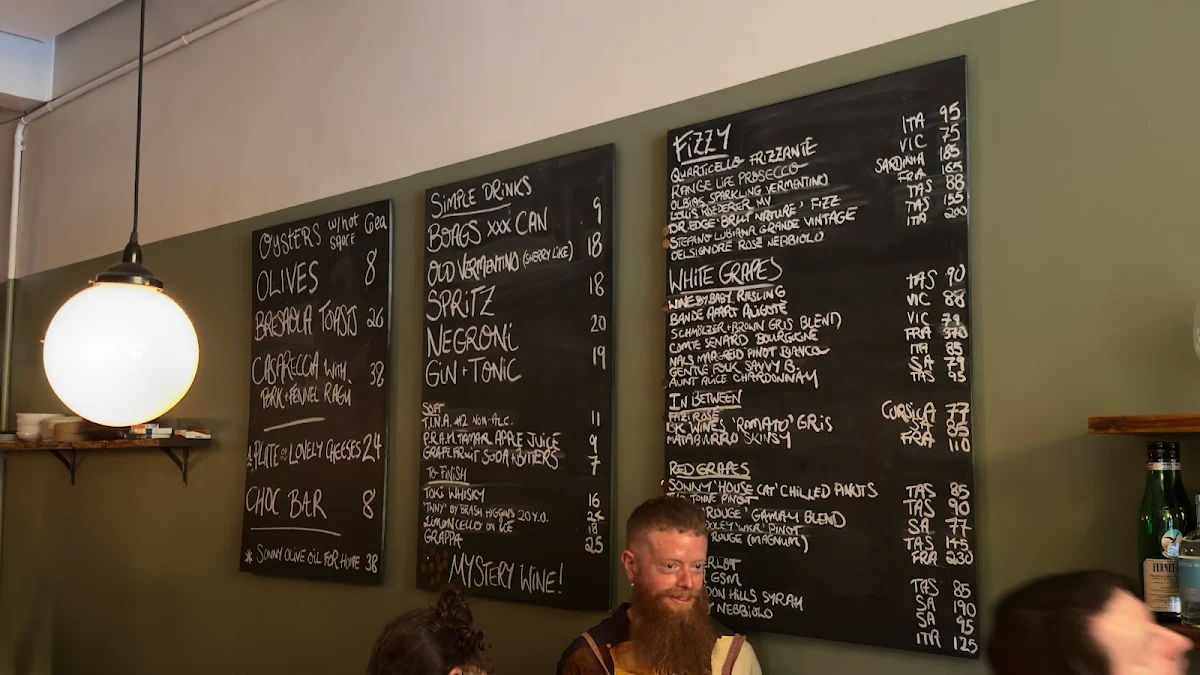 OYSTERS w/HOT SAUCE 6ea
OLIVES 8
BRESAOLA TOASTS 26
CASARECCIA WITH 38
PORK + FENNEL RAGU
A PLATE OF LOVELY CHEESES 24
CHOC BAR 8
* SONNY OLIVE OIL FOR HOME 38
SIMPLE DRINKS
BOAGS XXX CAN 9
OLD VERMENTINO (SHERRY LIKE) 18
SPRITZ 18
NEGRONI 20
GIN + TONIC 19
SOFT
T.I.N.A. #2 NON-ALC. 11
P.R.A.H. TAMAR APPLE JUICE 9
GRAPEFRUIT SODA + BITTERS 7
TO FINISH
TOKI WHISKY 16
'TAWNY' BY BRASH HIGGINS 20 Y.O.
LIMONCELLO ON ICE 18
GRAPPA 25
MYSTERY WINE!
FIZZY
QUARTICELLO FRIZZANTE ITA 95
RANGE LIFE PROSECCO VIC 75
OLBIAS SPARKLING VERMENTINO SARDINIA 185
LOUIS ROEDERER NV FRA 165
DR. EDGE 'BRUT NATURE' FIZZ TAS 88
STEFANO LUBIANA GRANDE VINTAGE TAS 155
DELSIGNORE ROSE NEBBIOLO ITA 200
WHITE GRAPES
WINE BY BABY RIESLING TAS 90
BANDE APART ALIGOTE VIC 88
SCHMÖLZER + BROWN GRIS BLEND) VIC 79
COMTE SENARD BOURGOGNE FRA 370
NALS MARGREID PINOT BIANCO ITA 85
GENTLE FOLK SAVVY B. SA 79
AUNT ALICE CHARDONNAY TAS 95
IN BETWEEN
ROSE CORSICA 77
WINES 'RAMATO' GRIS SA
SKINSY FRA 110
RED GRAPES
SONNY 'HOUSE CAT' CHILLED PINOTS TAS 85
TONNE PINOT TAS 90
ROUGE' GAMAY BLEND SA 77
PINOT TAS 145
ROUGE (MAGNUM) FRA 230
TAS 85
GSM SA 190
HILLS SYRAH SA 95
NEBBIOLO ITA 125
FERNET